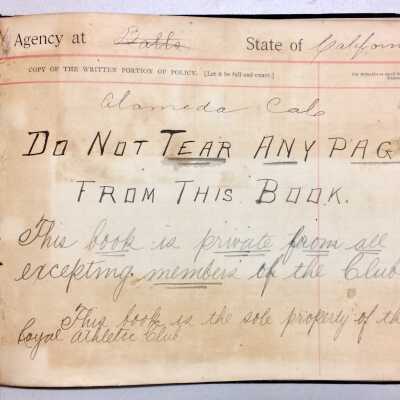 Agency at Galls State of Californ
COPY OF THE WRITTEN PORTION OF POLICY. [Let it be full and exact.]
Alameda Calo
DO NOT TEAR ANY PAG
FROM THIS BOOK.
This book is private from all
excepting members of the Club
This book is the sole property of th
Loyal Athletic Club